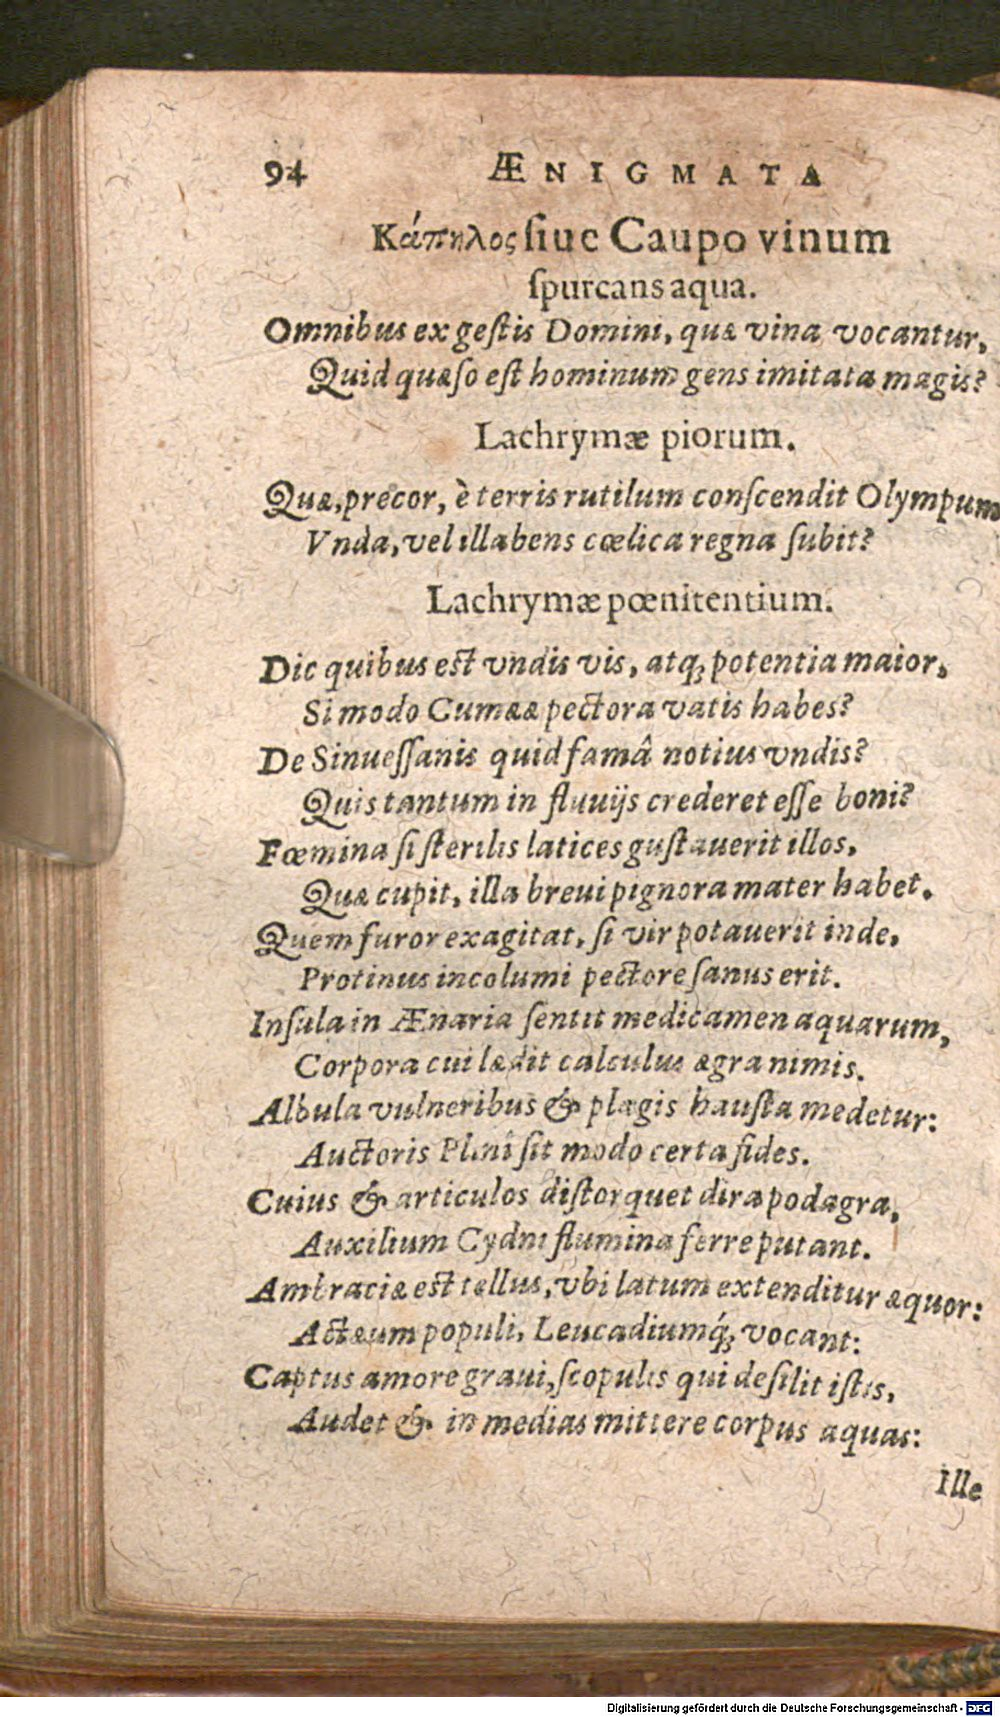 94 ÆNIGMATA
Κάπηλος ſiue Caupo vinum
ſpurcans aqua.
Omnibus ex geſtis Domini, quæ vina vocantur,
Quid quæſo eſt hominum gens imitata magis?
Lachrymæ piorum.
Quæ, precor, è terris rutilum conſcendit Olympum
Vnda, vel illabens cœlica regna ſubit?
Lachrymæ pœnitentium.
Dic quibus eſt vndis vis, atq; potentia maior,
Si modo Cumææ pectora vatis habes?
De Sinueſſanis quid famâ notius vndis?
Quis tantum in fluuijs crederet eſſe boni?
Fœmina ſi ſterilis latices guſtauerit illos,
Quæ cupit, illa breui pignora mater habet.
Quem furor exagitat, ſi vir potauerit inde,
Protinus incolumi pectore ſanus erit.
Inſula in Ænaria ſentit medicamen aquarum,
Corpora cui lædit calculus ægra nimis.
Albula vulneribus & plagis hauſta medetur:
Auctoris Plinî ſit modo certa fides.
Cuius & articulos diſtorquet dira podagra,
Auxilium Cydni flumina ferre putant.
Ambraciæ eſt tellus, vbi latum extenditur æquor:
Actæum populi, Leucadiumq́; vocant:
Captus amore graui, ſcopulis qui deſilit iſtis,
Audet & in medias mittere corpus aquas:
Ille
Digitalisierung gefördert durch die Deutsche Forschungsgemeinschaft - DFG